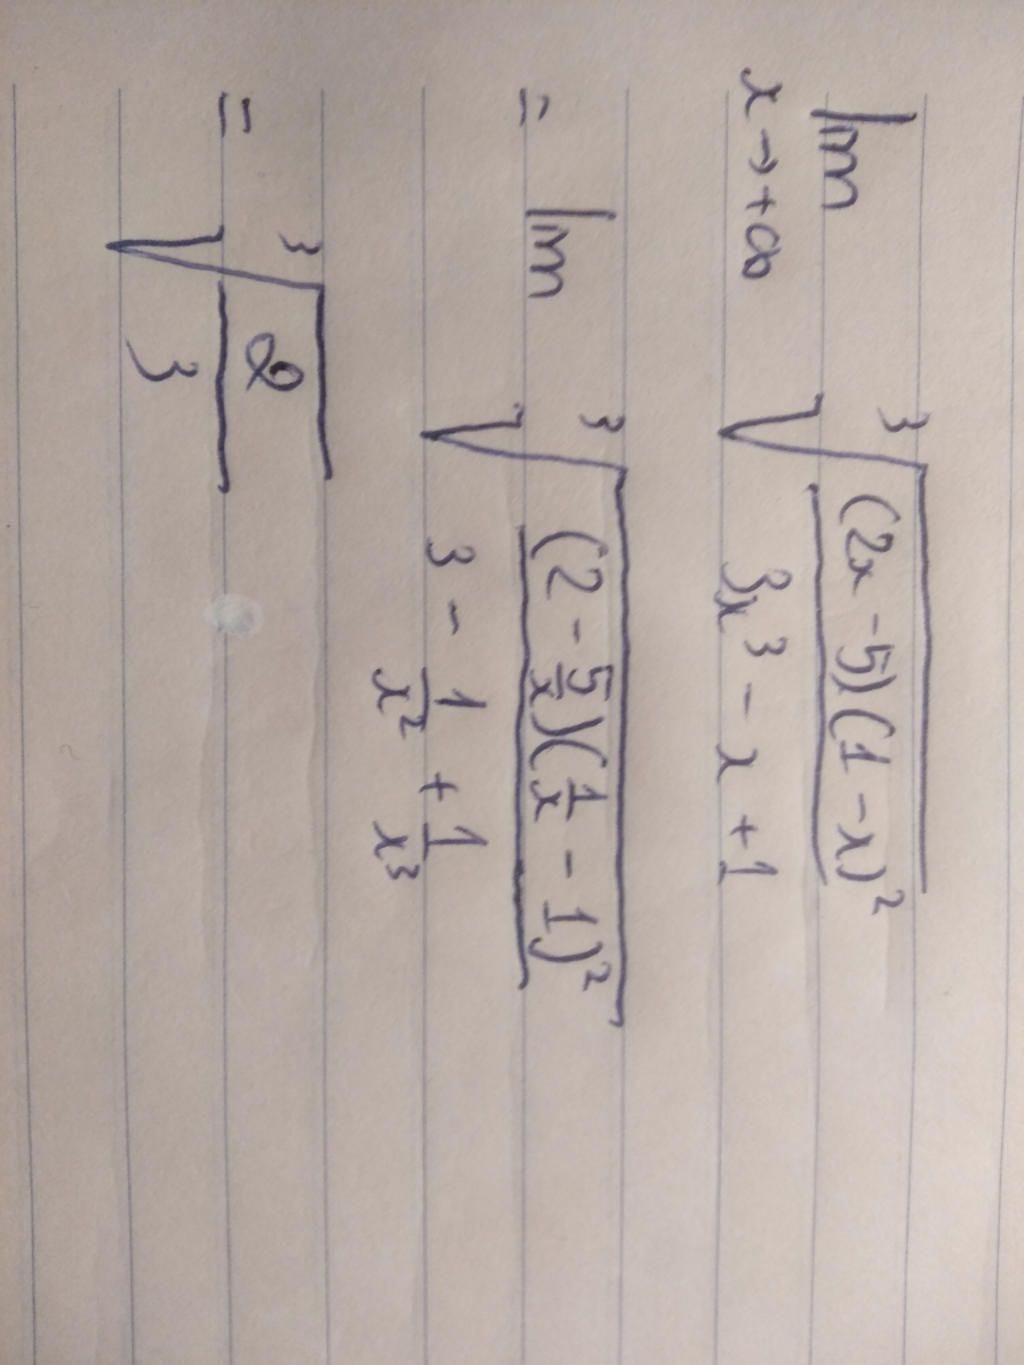 lim x→+∞ ∛((2x - 5)(1 - x)² / (3x³ - x + 1))
= lim ∛((2 - 5/x)(1/x - 1)² / (3 - 1/x² + 1/x³))
= ∛(2/3)